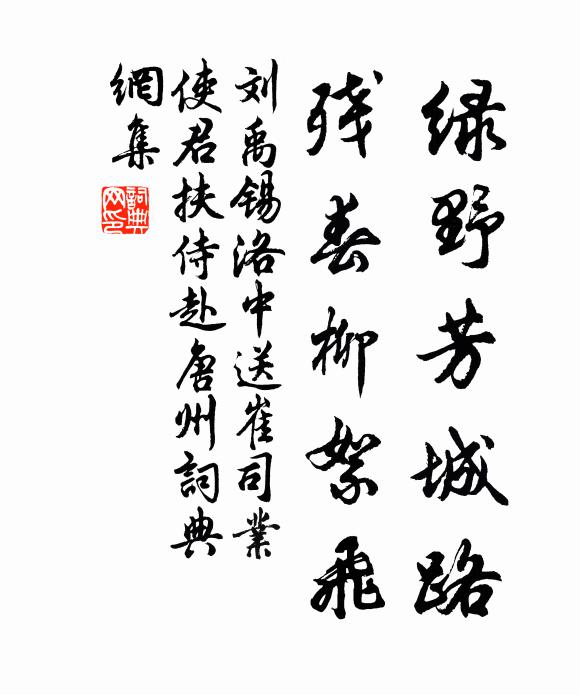 绿野芳城路
残春柳絮飛
刘禹锡洛中送崔司業
使君扶侍赴唐州詞典
網集
詞典
网印